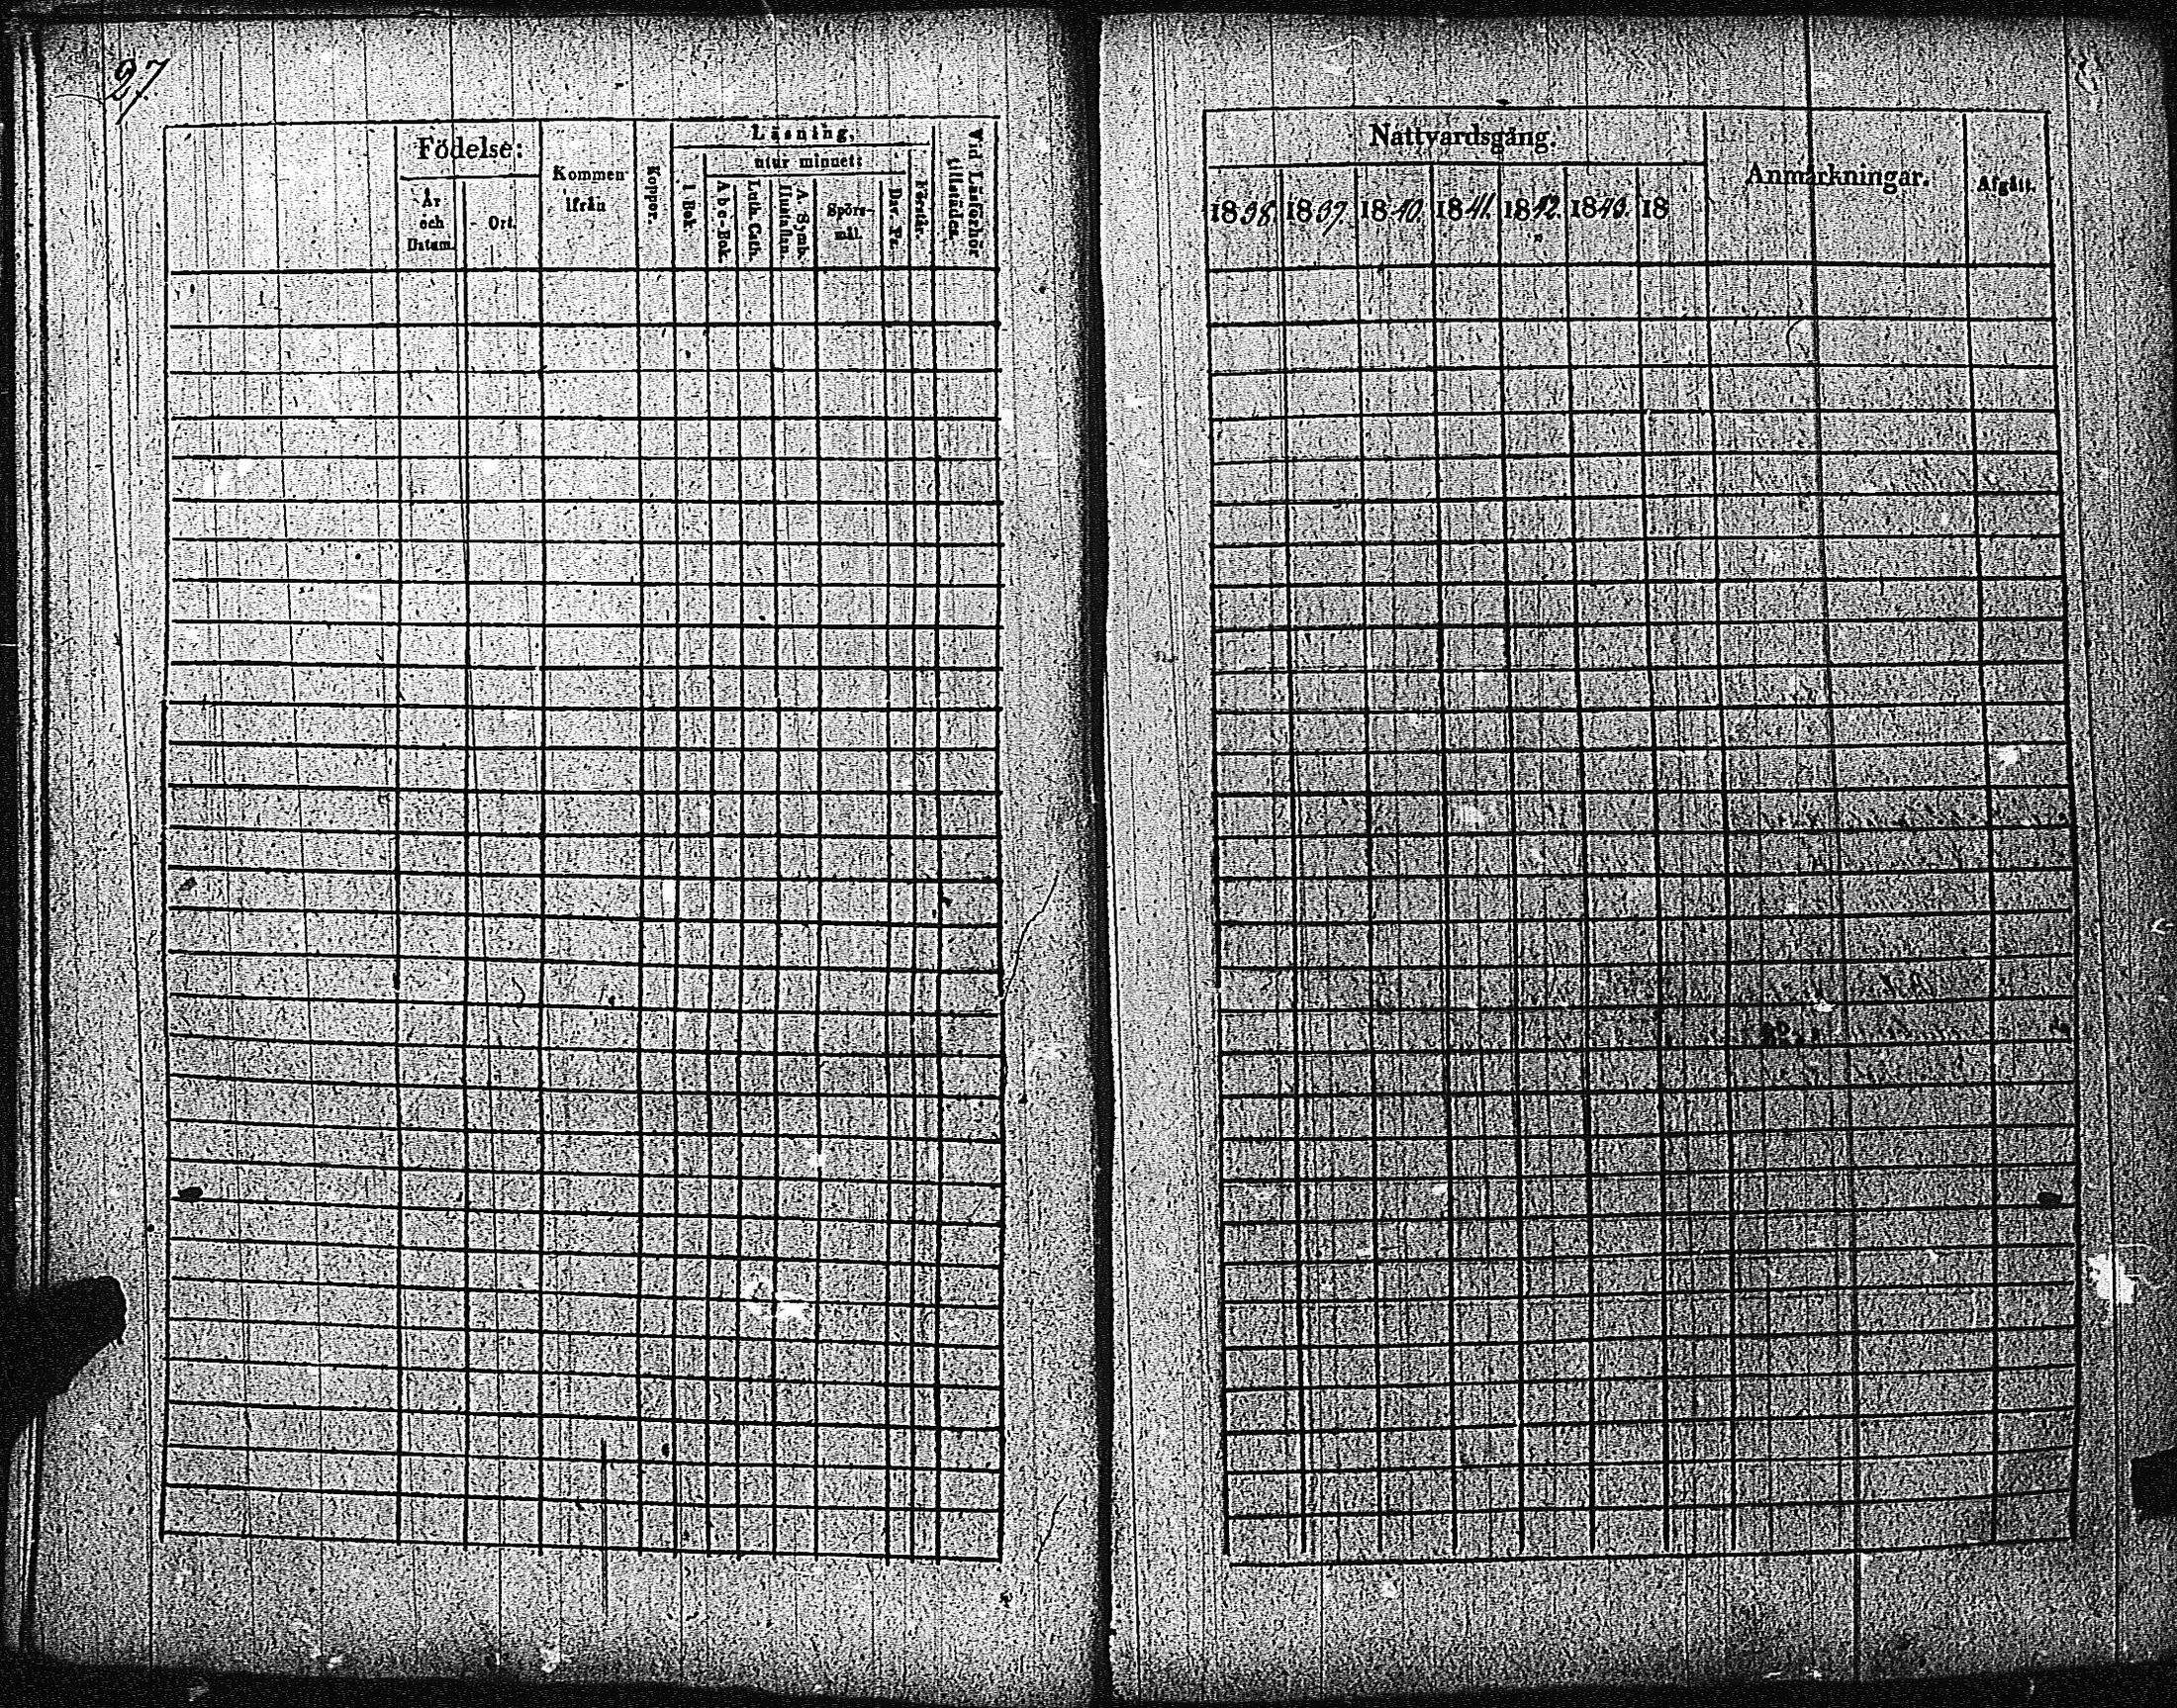 27
Födelse:
År
och
Datum.
Ort.
Kommen
ifrån
Koppor.
Läsning,
utur minnet:
I Bok.
A b c-Bok.
Luth. Cath.
A. Symb.
Hustaflan.
Spörs-
mål.
Dav. Ps.
Förstår.
Vid Läsförhör
tillstädes.
Nattvardsgång.
1838. 1839. 1840. 1841. 1842. 1843. 18
Anmärkningar.
Afgått.